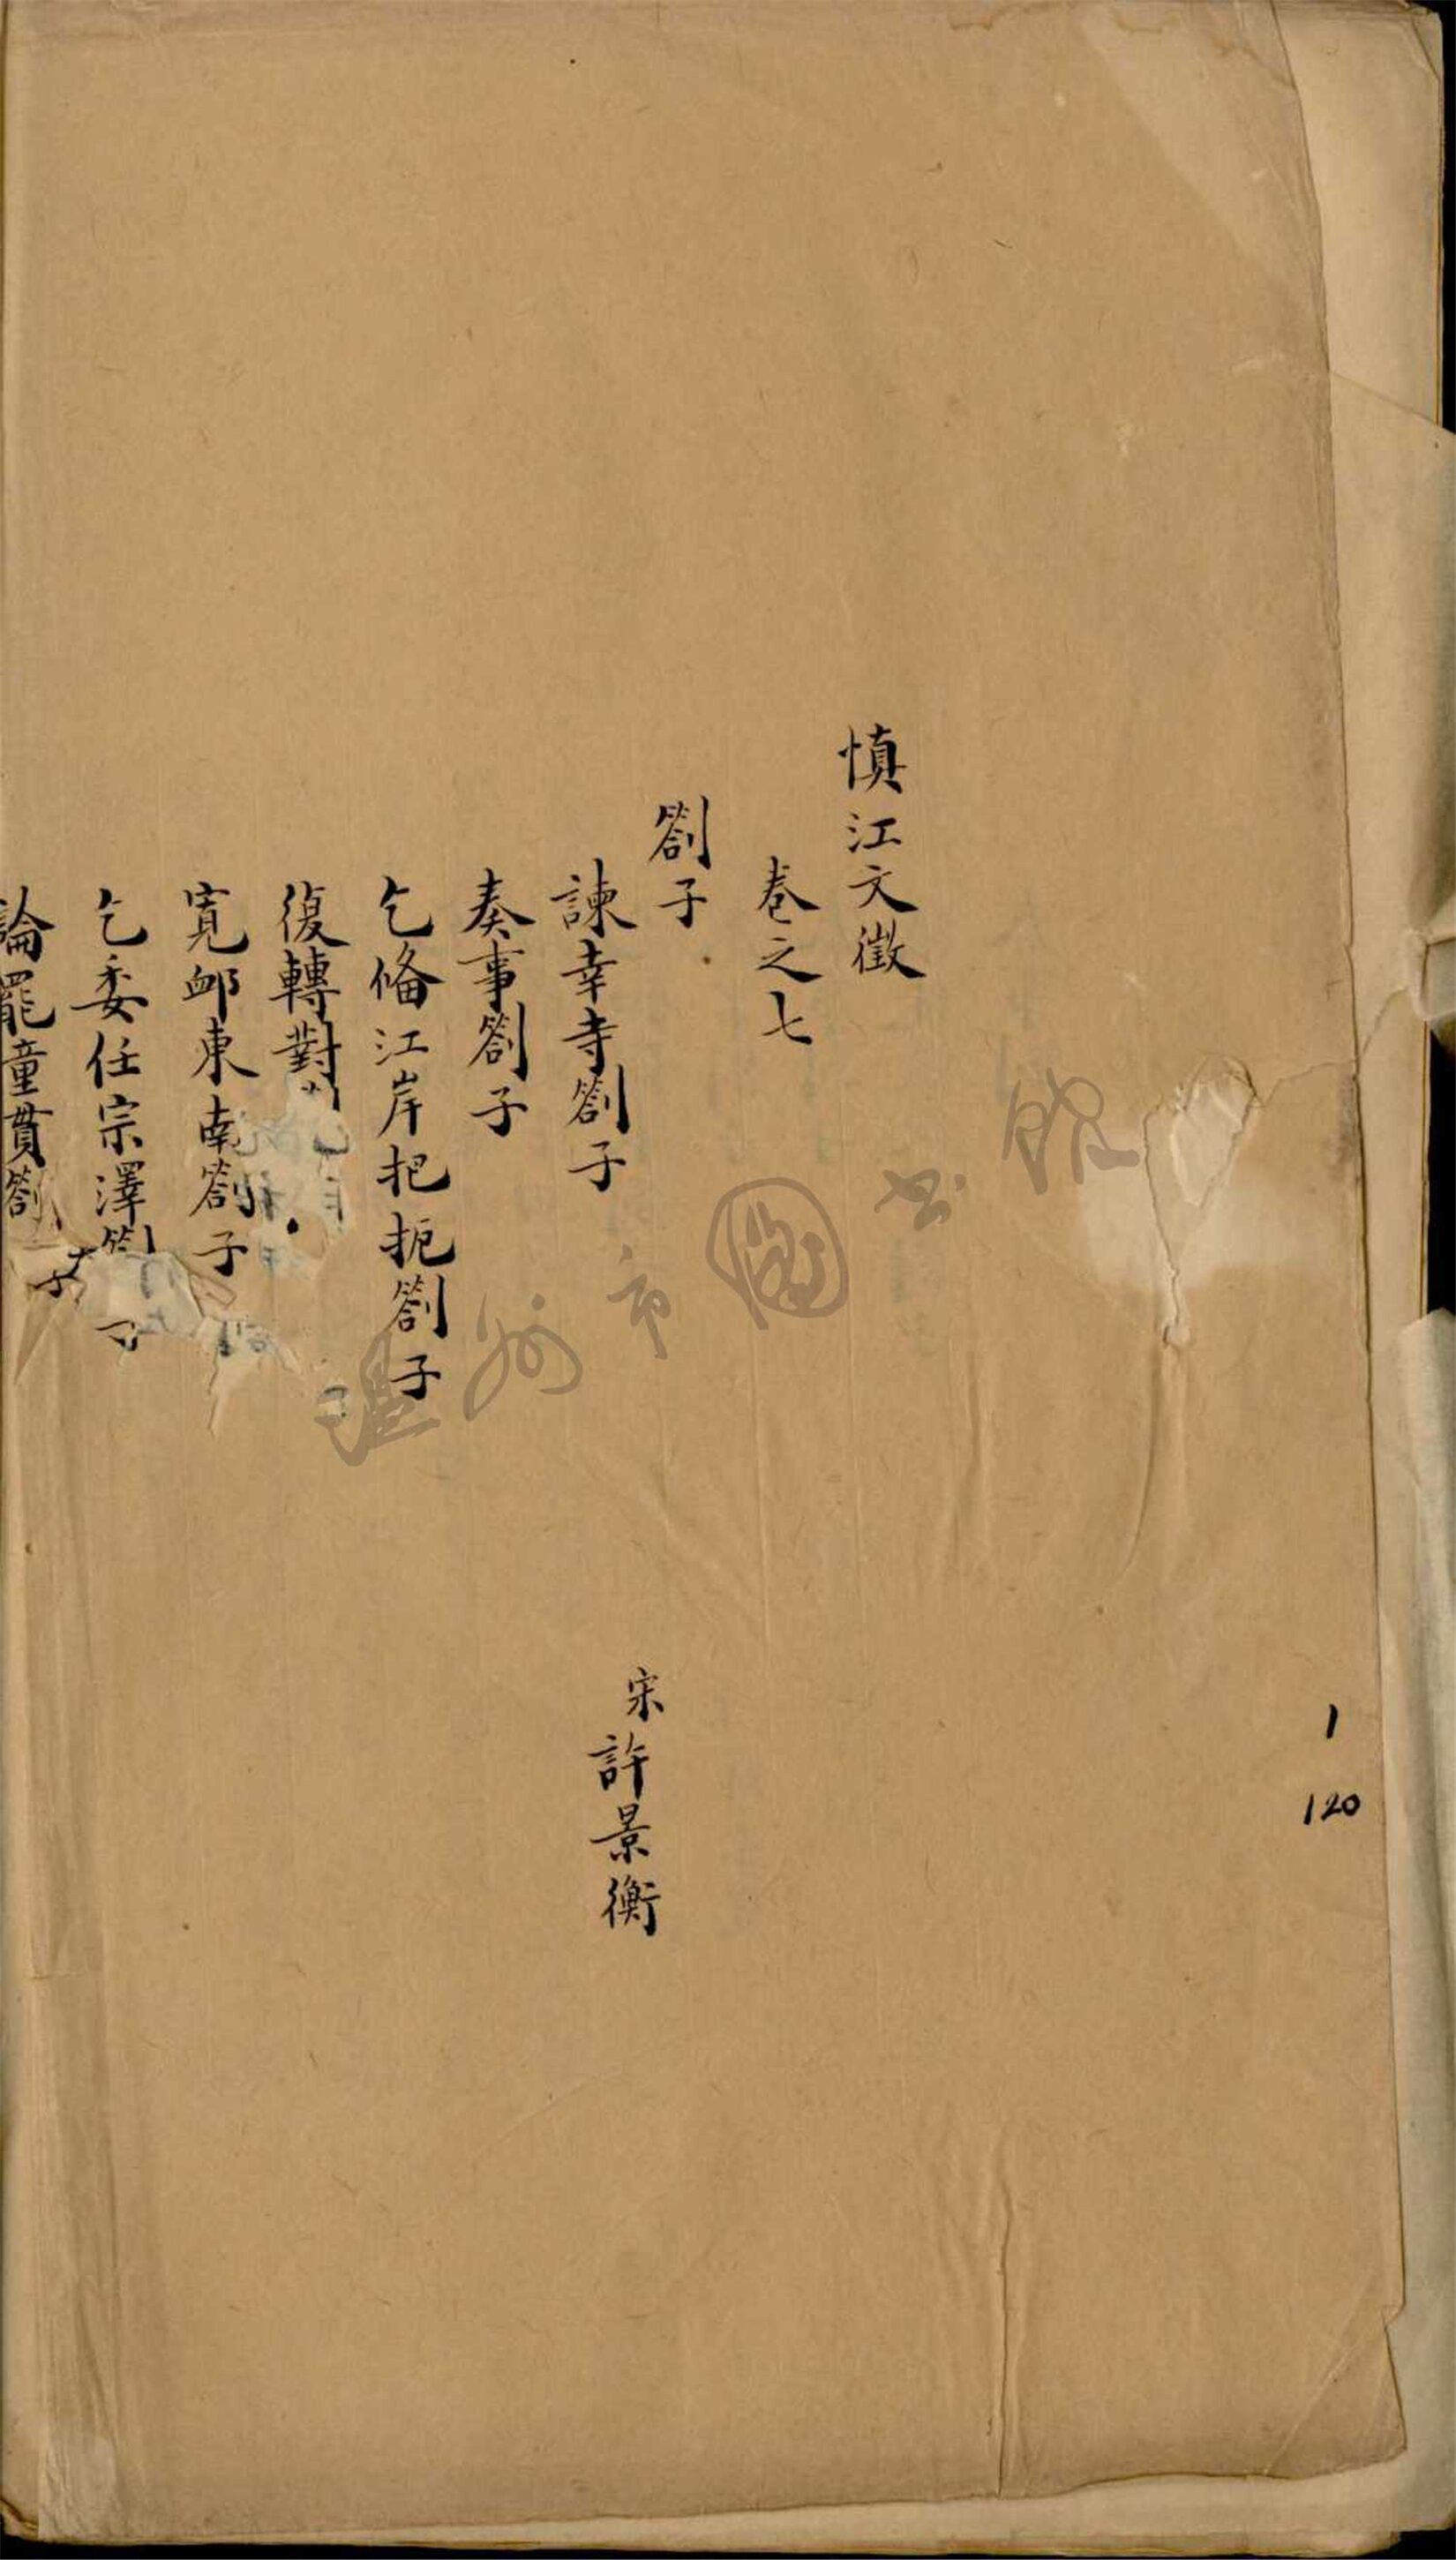 慎江文徵
卷之七
劄子
諫幸寺劄子
宋許景衡
奏事劄子
乞俻江岸把扼劄子
復轉對
寬卹東南劄子
乞委任宗澤劄子
論罷童貫劄子
温州市圖书馆
1
120